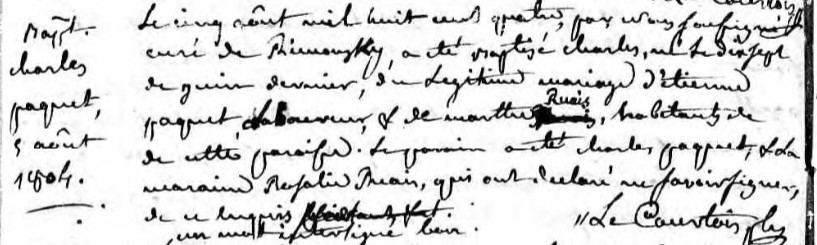 Bapt.
charles
paquet,
5 août
1804.
Le cinq août mil huit cent quatre, par nous soussigné
curé de Rimousky, a été baptisé charles, né le dixsept
de juin dernier, du Legitime mariage d'étienne
paquet, Laboureur, & de marthe Ruais, habitants de
cette paroisse. Le parain a été charles paquet, & La
maraine Rosalie Ruais, qui ont declaré ne savoir signer,
de ce enquis.
un mot interligné bon. Le Courtois,